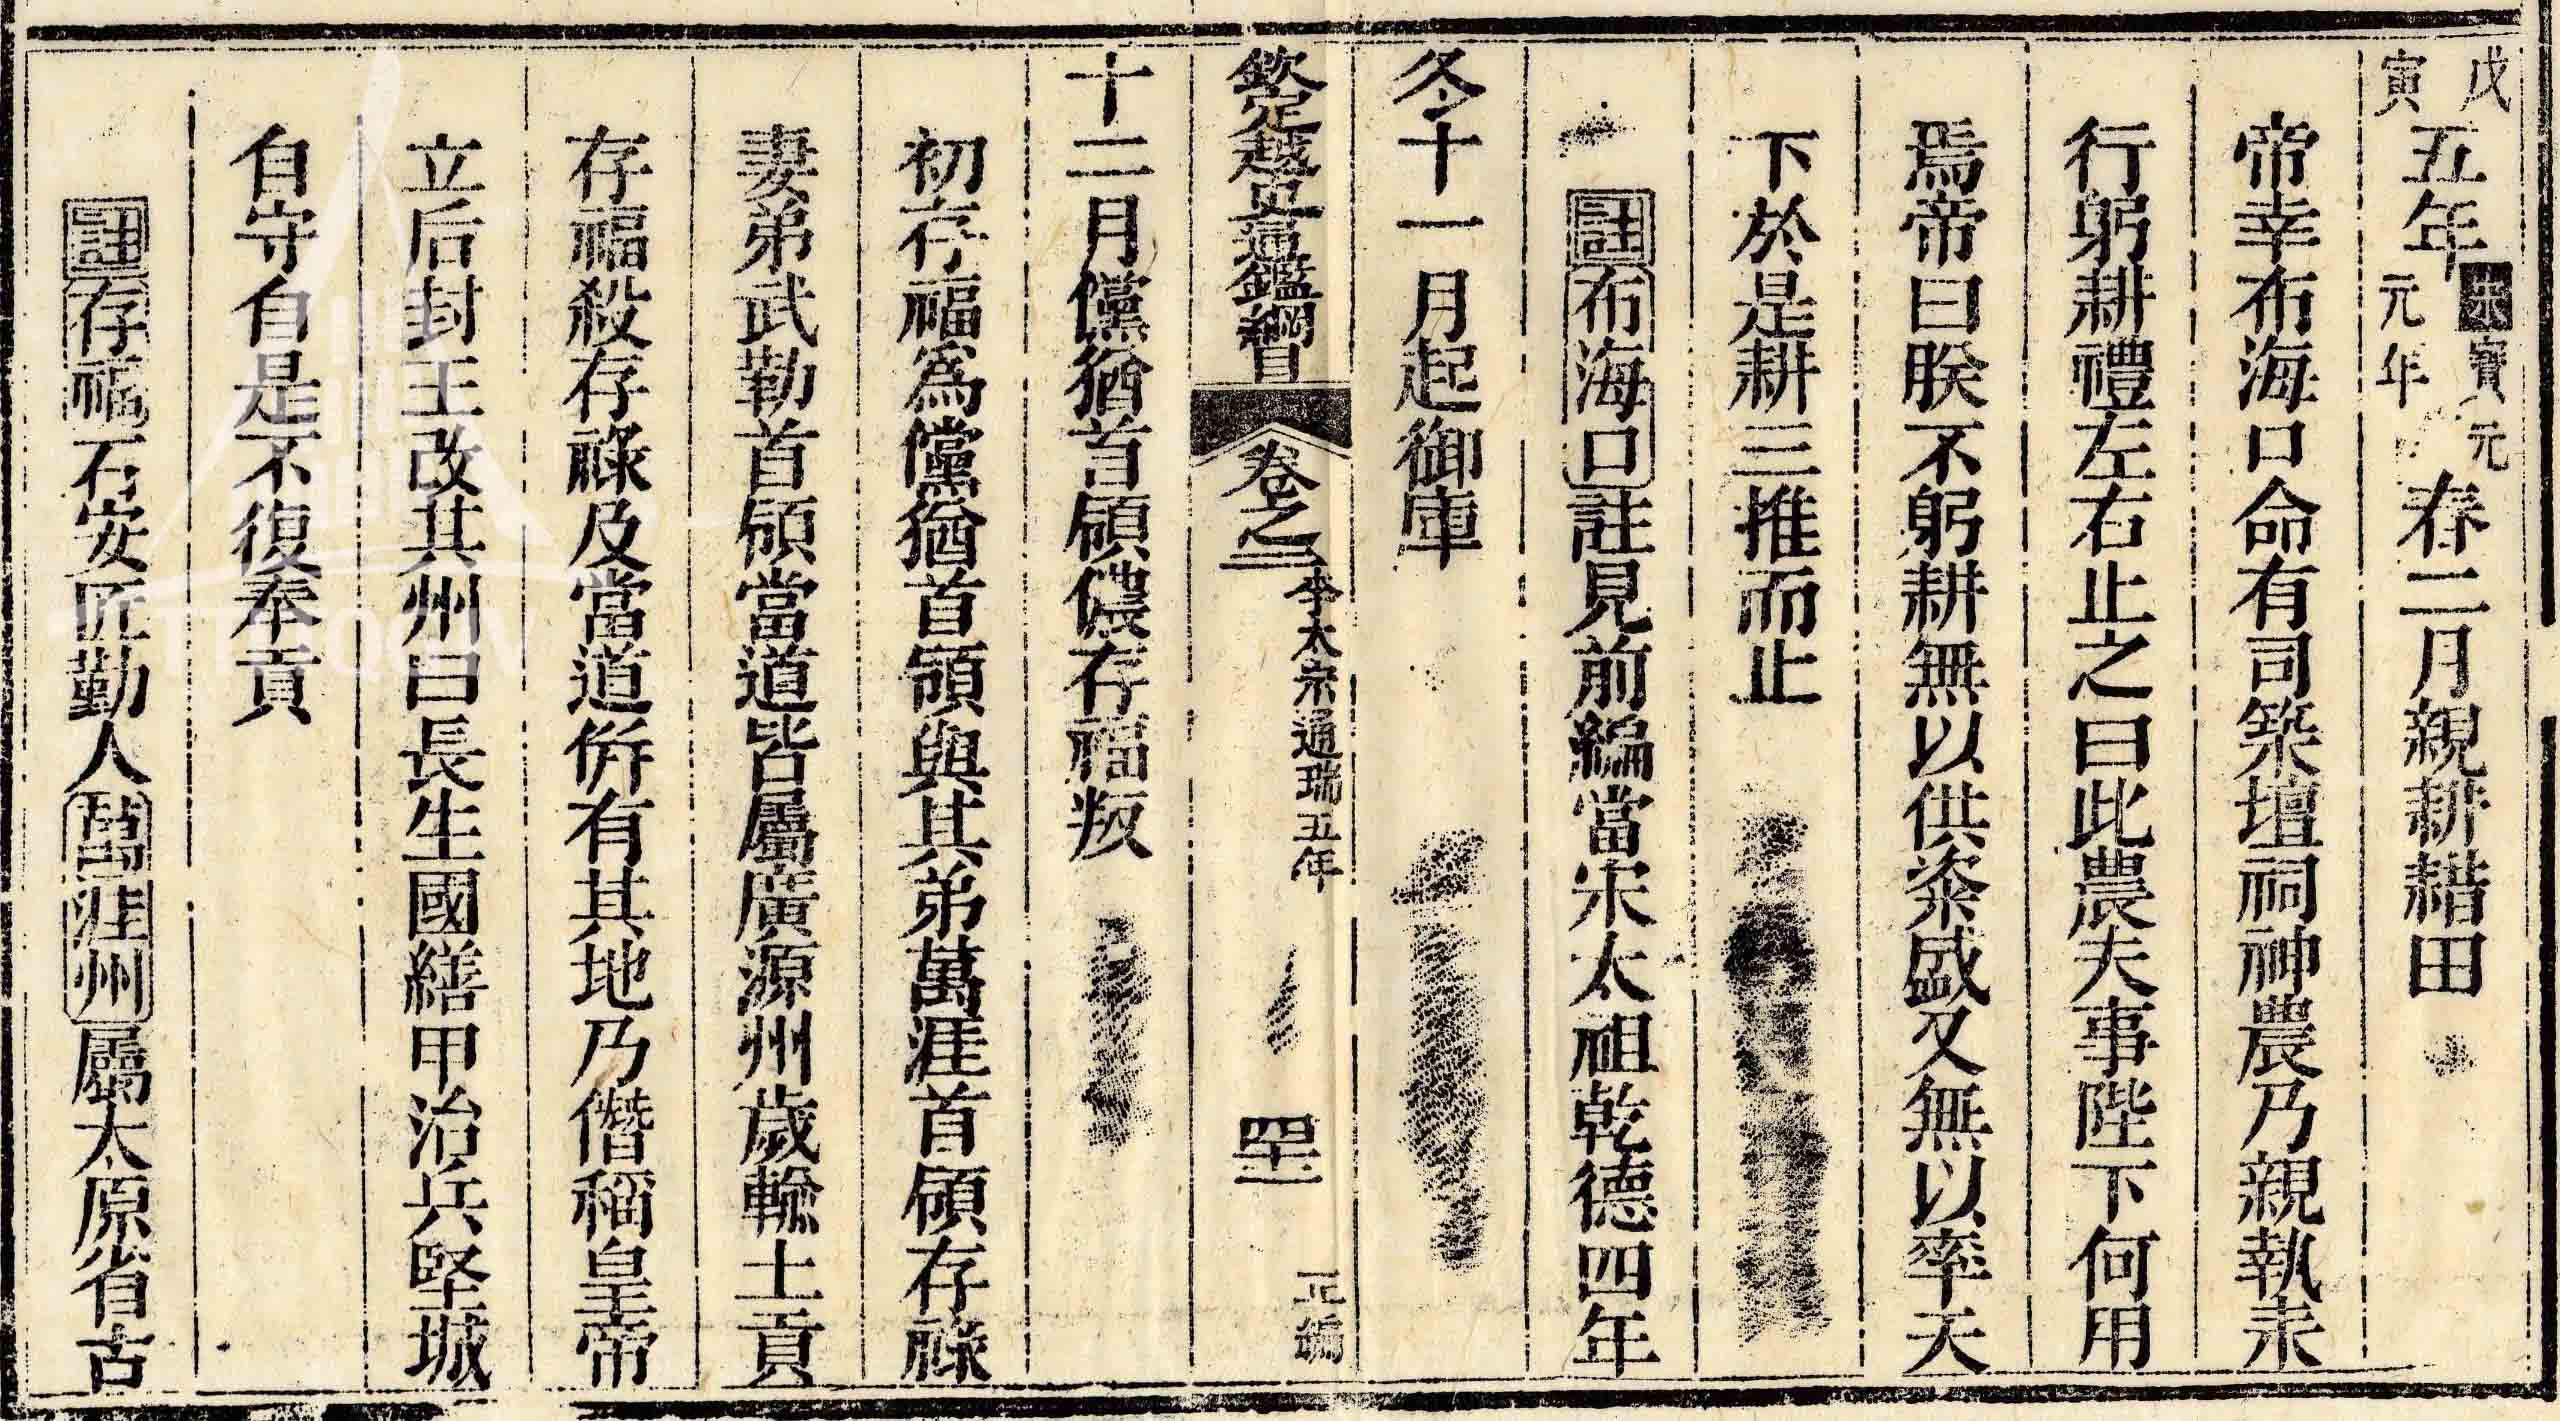 戊寅五年宋寶元元年春二月親耕耤田
帝幸布海口命有司築壇祠神農乃親執耒
行躬耕禮左右止之曰此農夫事陛下何用
焉帝曰朕不躬耕無以供粢盛又無以率天
下於是耕三推而止
註布海口註見前編當宋太祖乾德四年
冬十一月起御庫
欽定越史通鑑綱目 卷之二 李太宗通瑞五年 四十二 正編
十二月儻猶首領儂存福叛
初存福爲儻猶首領與其弟萬涯首領存祿
妻弟武勒首領當道皆屬廣源州歲輸土貢
存福殺存祿及當道併有其地乃僭稱皇帝
立后封王改其州曰長生國繕甲治兵堅城
自守自是不復奉貢
註存福石安匠勤人萬涯州屬太原省古